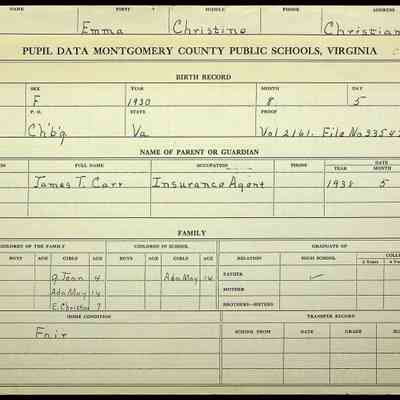 NAME FIRST MIDDLE PHONE ADDRESS
Emma Christine Christian
PUPIL DATA MONTGOMERY COUNTY PUBLIC SCHOOLS, VIRGINIA
BIRTH RECORD
SEX YEAR MONTH DAY
F 1930 8 5
P. O. STATE PROOF
Ch'b'g Va Vol 2161. File No 3354
NAME OF PARENT OR GUARDIAN
FULL NAME OCCUPATION PHONE DATE
YEAR MONTH
James T. Carr Insurance Agent 1938 5
FAMILY
CHILDREN OF THE FAMILY CHILDREN IN SCHOOL GRADUATE OF
BOYS AGE GIRLS AGE BOYS AGE GIRLS AGE RELATION HIGH SCHOOL
2 Years
G. Jean 4 Ada May 14 FATHER ✓
Ada May 14 MOTHER
E. Christine 7 BROTHERS—SISTERS
HOME CONDITION TRANSFER RECORD
Fair SCHOOL FROM DATE GRADE